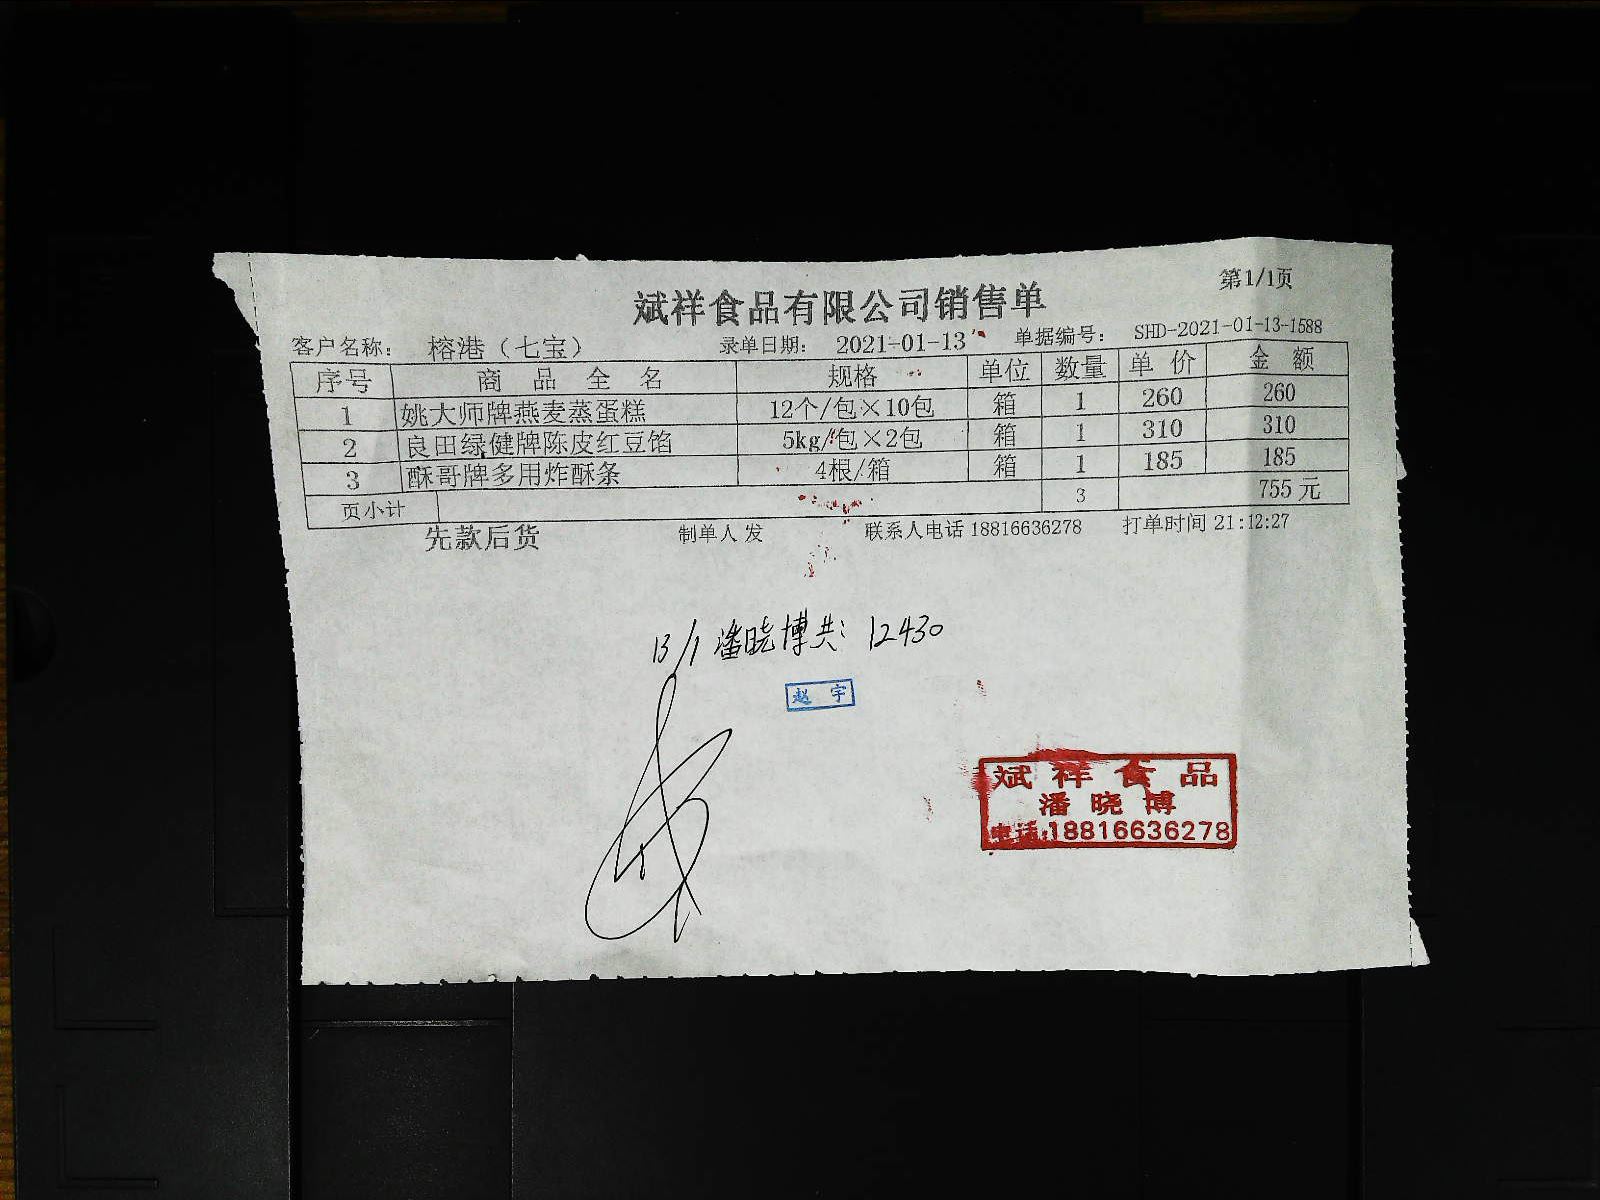 第1/1页
斌祥食品有限公司销售单
客户名称： 榕港（七宝） 录单日期： 2021-01-13 单据编号： SHD-2021-01-13-1588
序号 商 品 全 名 规格 单位 数量 单 价 金 额
1 姚大师牌燕麦蒸蛋糕 12个/包×10包 箱 1 260 260
2 良田绿健牌陈皮红豆馅 5kg/包×2包 箱 1 310 310
3 酥哥牌多用炸酥条 4根/箱 箱 1 185 185
页小计 3 755 元
先款后货 制单人 发 联系人电话 18816636278 打单时间 21:12:27
13/1 潘晓博共: 12430
赵 宇
斌 祥 食 品
潘 晓 博
电话:18816636278